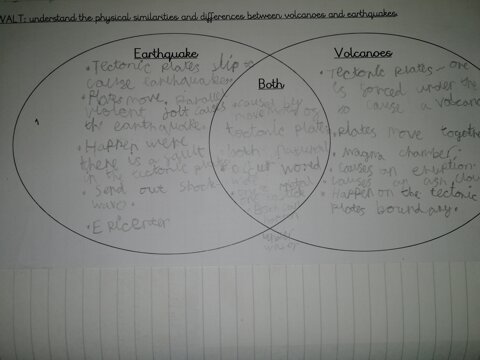 WALT: understand the physical similarities and differences between volcanoes and earthquakes.
Earthquake
• Tectonic plates slip to
cause earthquakes
• Plates move Parallel
violent jolt causes
the earthquake.
• Happen were
there is a fault
in the tectonic plates
• Send out shock
waves.
• Epicenter
Both
• caused by
movement of
tectonic plates
• both natural
Volcanoes
• Tectonic plates - one
is forced under the
to cause a volcano
• Plates move together
• magma chamber.
• causes an eruption
• causes an ash clou
• Happen on the tectonic
plates boundary.